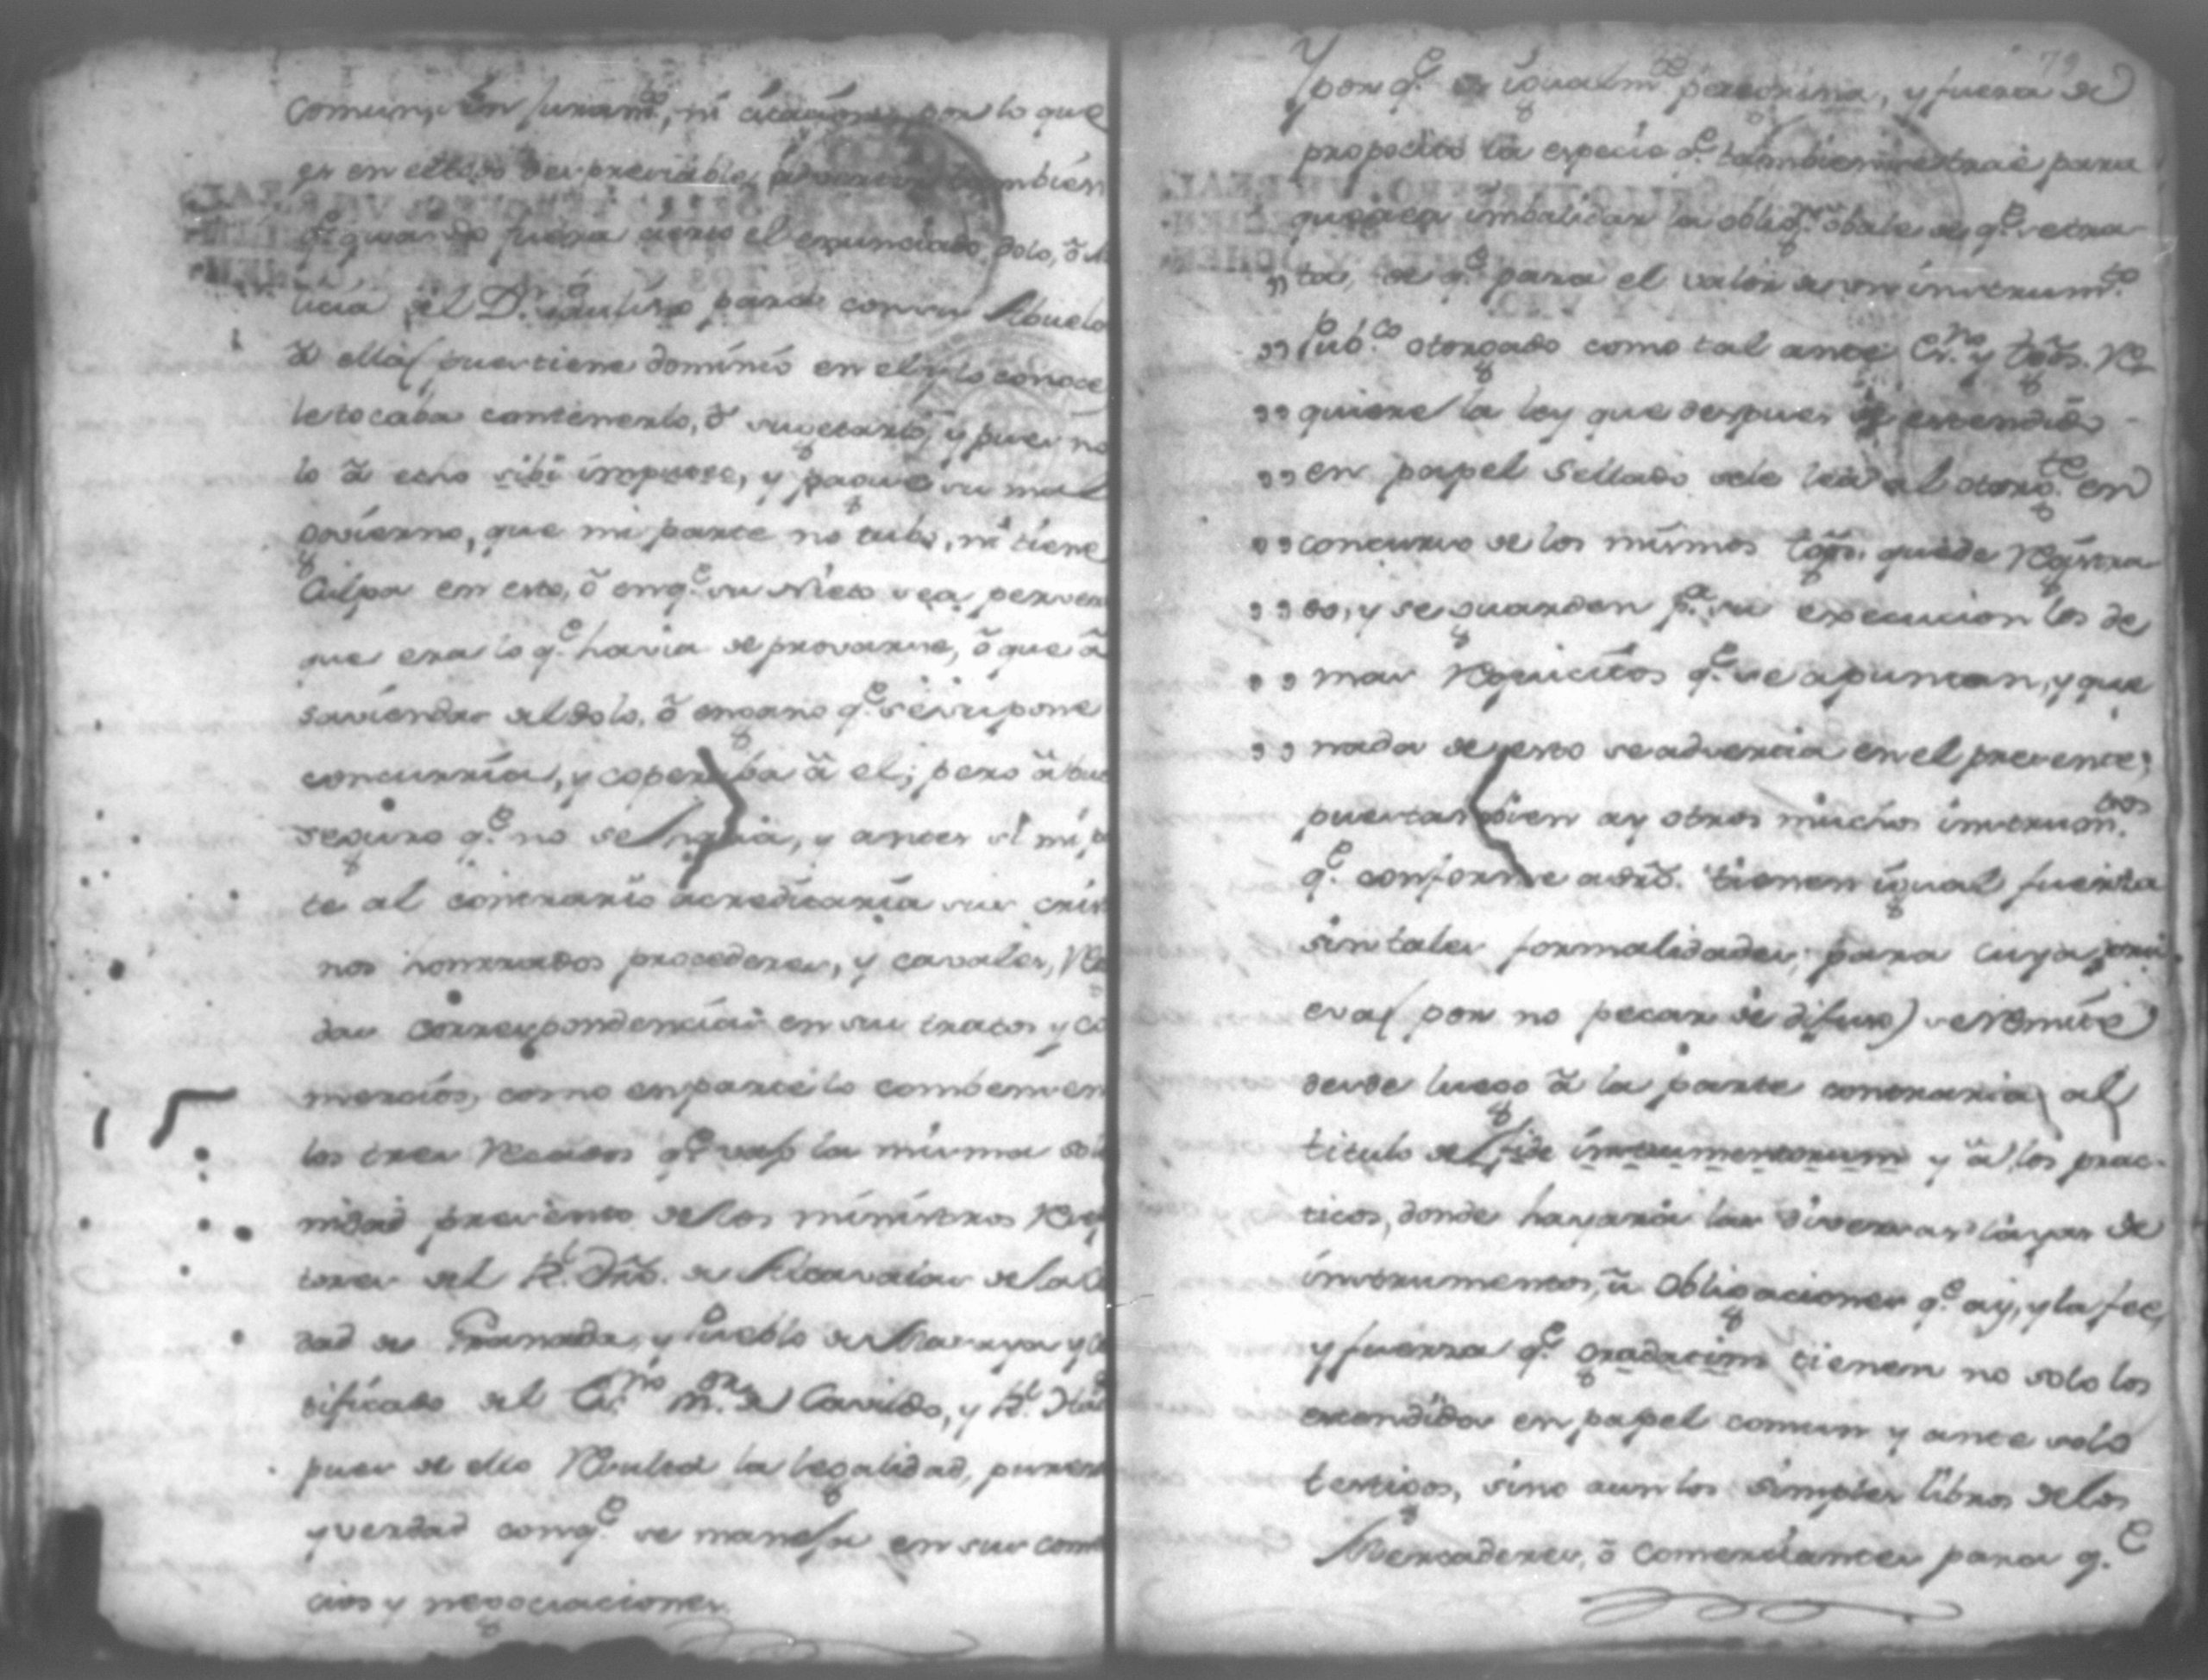 comun, sin juram.to, ni citacion, por lo que
es en el todo despreciable,
q.e quando fuera cierto el enunciado dolo, ò
licia el D.n pardo como su Abuelo
à ella (pues tiene dominio en el y lo conoce
le tocaba contenerlo, ò sugetarlo, y pues no
lo à echo sibi impute, y pague su mal
govierno, que mi parte no tubo, ni tiene
Culpa en esto, ò en q.e su Nieto sea perver
que era lo q.e havia de provarse, ò que à
saviendas del dolo, ò engano q.e se supone
concurria, y coperaba à el; pero à buen
seguro q.e no se haria, y antes si mi p
te al contrario acreditaria sus cris
nos honrrados procederes, y cavales, Re
das correspondencias en sus tratos y co
mercios, como en parte lo combensen
los tres Recados q.e vajo la misma sole
nidad presento de los ministros Rec
tores del R.l Dro. de Alcavalas de la Ci
dad de Granada, y Pueblo de Masaya y
tificado del Es.no m.or de Cavildo, y R.l
pues de ello Resulta la legalidad, pureza
y verdad con q.e se maneja en sus comer
cios y negociaciones.
79
Y por q.e es igualm.te peregrina, y fuera de
proposito la especie q.e tambien se trae para
querer imbalidar la oblig.on obale de q.e se tra
" ta, de q.e para el valor de un instrum.to
" Pub.co otorgado como tal ante Es.no y tgōs. Re
" quiere la ley que despues de estendido
" en papel Sellado se le lea al otorg.te en
" concurso de los mismos tgōs. quede Registra
" do, y se guarden p.a su execucion los de
" mas Requicitos q.e se apuntan, y que
" nada de esto se advertia en el presente;
pues tambien ay otros muchos instrum.tos
q.e conforme a dro. tienen igual fuerza
sin tales formalidades, para cuya pru
eva (por no pecar de difuso) se Remite
desde luego à la parte contraria al
titulo de fide instrumentorum y à los prac-
ticos, donde hayará las diversas layas de
instrumentos, ù Obligaciones q.e ay, y la fee,
y fuerza q.e gradatim tienen no solo los
extendidos en papel comun y ante solo
testigos, sino aun los simples libros de los
Mercaderes, ò Comerciantes para q.e